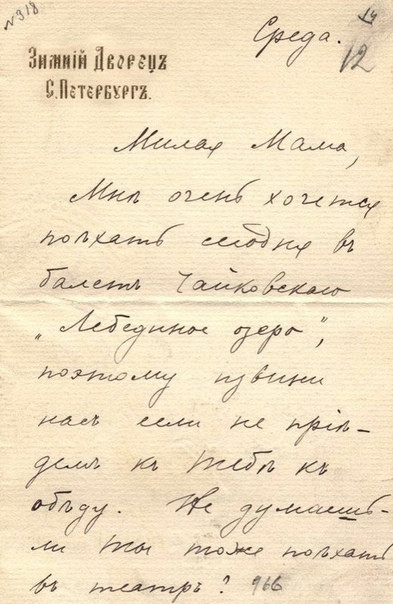 №318
Среда.
14
12
Зимній Дворецъ
С. Петербургъ.
Милая Мама,
Мнѣ очень хочется
поѣхать сегодня въ
балетъ Чайковскаго
„Лебединое озеро",
поэтому извини
насъ если не прiѣ-
демъ къ тебѣ къ
обѣду. Не думаешь-
ли ты тоже поѣхать
въ театръ? 966